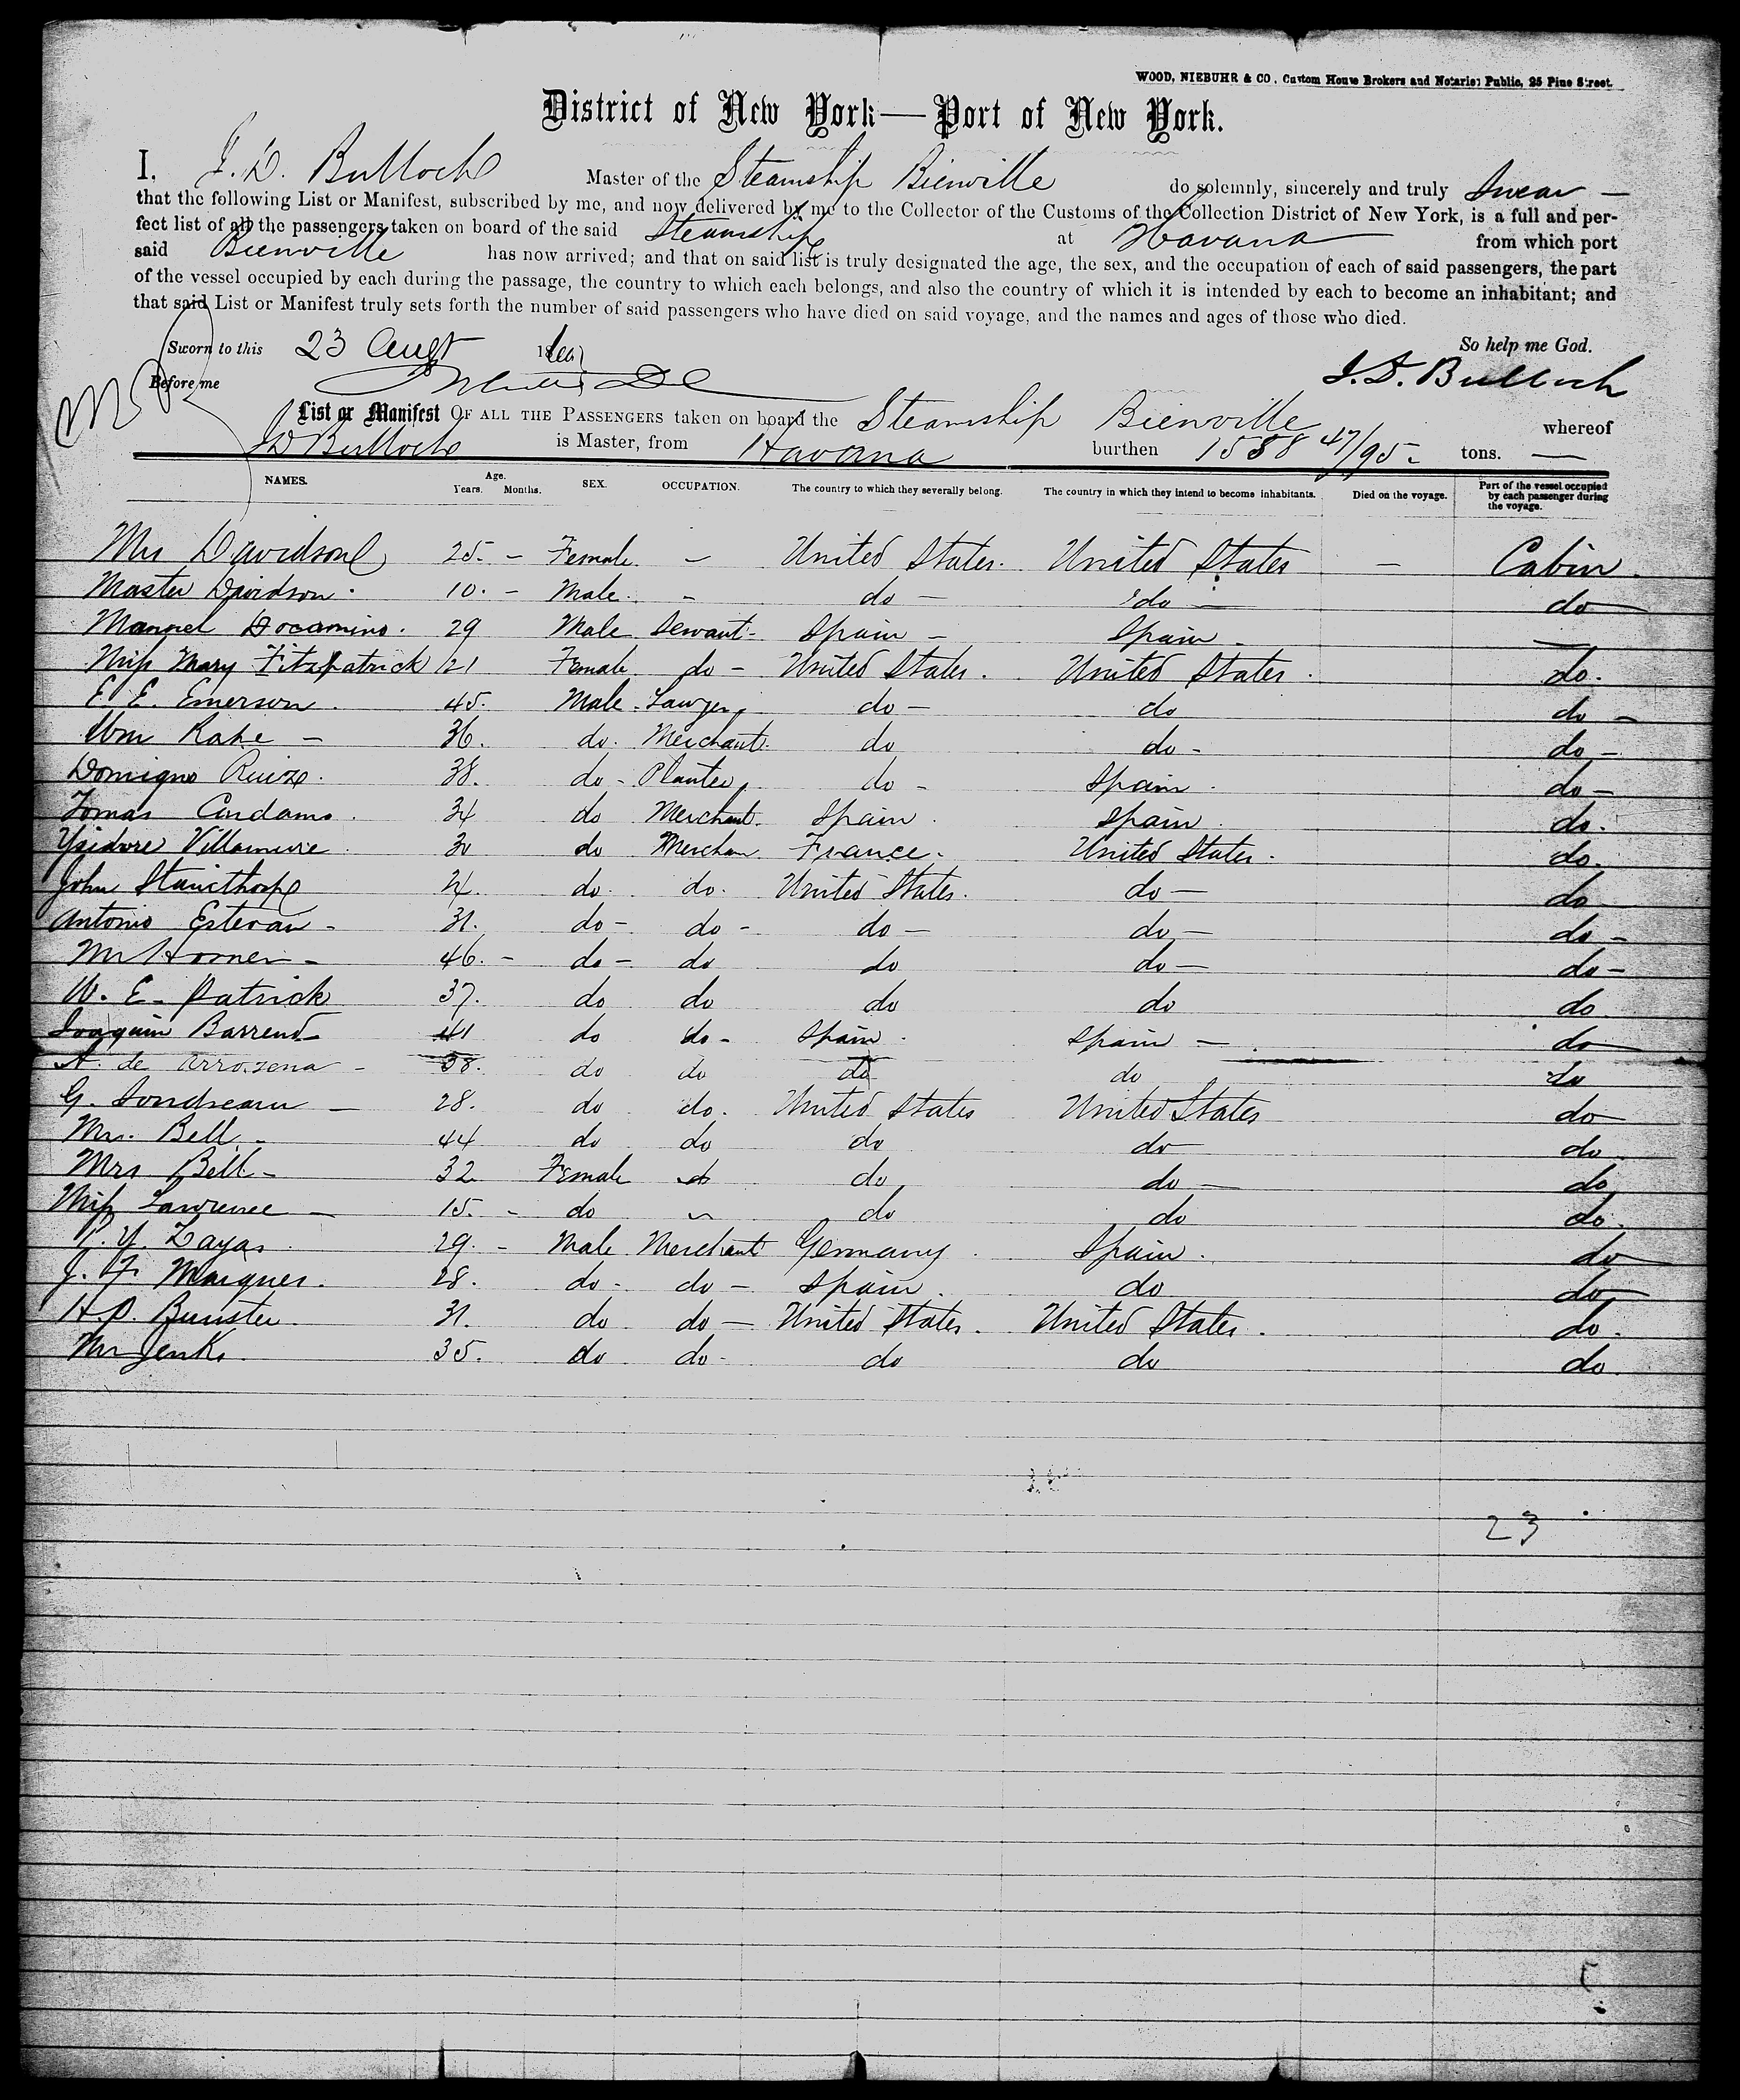 WOOD, NIEBUHR & CO, Custom House Brokers and Notaries Public, 25 Pine Street.
District of New York—Port of New York.
I, J. D. Bulloch Master of the Steamship Bienville do solemnly, sincerely and truly Swear —
that the following List or Manifest, subscribed by me, and now delivered by me to the Collector of the Customs of the Collection District of New York, is a full and per-
fect list of all the passengers taken on board of the said Steamship at Havana from which port
said Bienville has now arrived; and that on said list is truly designated the age, the sex, and the occupation of each of said passengers, the part
of the vessel occupied by each during the passage, the country to which each belongs, and also the country of which it is intended by each to become an inhabitant; and
that said List or Manifest truly sets forth the number of said passengers who have died on said voyage, and the names and ages of those who died.
Sworn to this 23 Augt So help me God.
Before me J. D. Bulloch
List or Manifest OF ALL THE PASSENGERS taken on board the Steamship Bienville whereof
J D Bulloch is Master, from Havana burthen 1558 47/95 - tons. —
NAMES. Age. Years. Months. SEX. OCCUPATION. The country to which they severally belong. The country in which they intend to become inhabitants. Died on the voyage. Part of the vessel occupied by each passenger during the voyage.
Mrs Davidson 25 - Female - United States. United States - Cabin.
Master Davidson 10. - Male. - do - do - do
Manuel Docamino. 29 Male Servant - Spain - Spain -
Miss Mary Fitzpatrick 21 Female do - United States. United States. do.
E. E. Emerson. 45. Male - Lawyer do - do do -
Wm Kahe - 36. do. Merchant. do do - do -
Domigno Ruize. 38. do - Planter do - Spain. do -
Tomas Andamo. 34 do Merchant. Spain. Spain. do.
Ysidore Villamure. 30 do Merchan France. United States. do.
John Stanethorpe 24. do. do. United States. do - do
Antonio Estevan - 31. do - do - do - do - do -
Mr Horner - 46. - do - do do do - do -
W. E. Patrick 37. do do do do do
Joaquin Barrend - 41 do do - Spain. Spain - do
A. de Arrozena - 38. do do do do do
G. Sondreann - 28. do do. United States United States do
Mr. Bell. - 44 do do do do do
Mrs Bell - 32 Female do do do - do
Miss Lawrence - 15. - do - do do do.
Y. Zayas. 29. - Male Merchant Germany. Spain. do
J. F. Marques. 28. do - do - Spain. do do
H. P. 31. do do - United States. United States. do.
Mr Jenks. 35. do do - do do do.
23